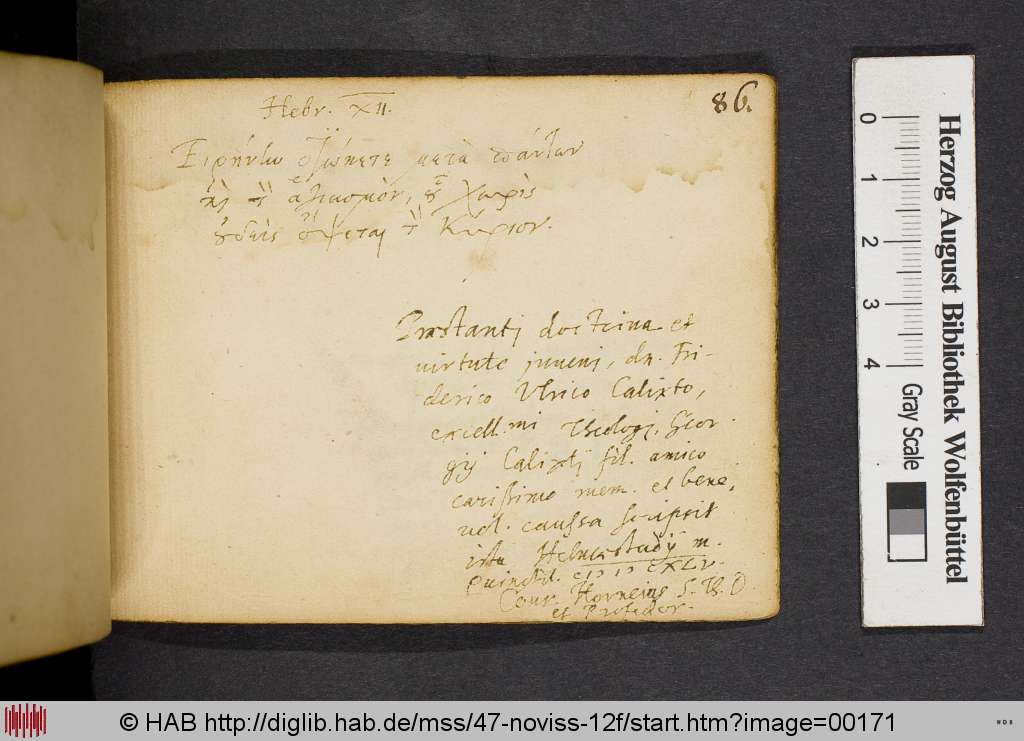 86.
Hebr. XII.
Εἰρήνην διώκετε μετὰ πάντων
καὶ τὸν ἁγιασμὸν, οὗ χωρὶς
οὐδεὶς ὄψεται τὸν Κύριον.
Præstanti doctrina et
virtute juveni, dn. Fri-
derico Ulrico Calixto,
excell.mi Theologi, Geor-
gij Calixti fil. amico
carissimo mem. et bene,
vol. caussa scripsit
ista Helmestadij m.
Quinctil. CIↃ IↃ CXLV.
Conr. Horneius S. Th. D.
et Professor.
0
1
2
3
4
Gray Scale
Herzog August Bibliothek Wolfenbüttel
© HAB http://diglib.hab.de/mss/47-noviss-12f/start.htm?image=00171